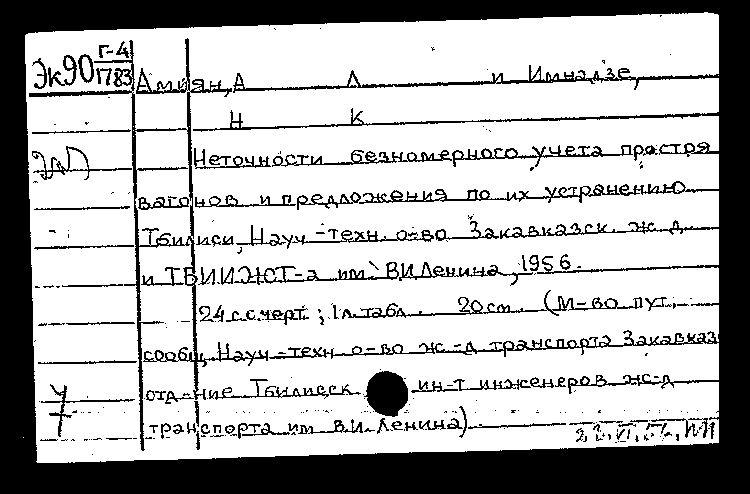 Эк90 Г-4
1783
Амиян, А Л и Имнадзе,
Н К
Неточности безномерного учета простря
вагонов и предложения по их устранению
Тбилиси, Науч-техн. о-во Закавказск. ж. д.
и ТБИИЖТ-а им. В.И.Ленина, 1956.
24с.с черт.; 1л.табл. 20см. (М-во пут.
сообщ. Науч-техн о-во ж-д транспорта Закавказ
отд-ние Тбилисск ин-т инженеров ж-д
транспорта им В.И. Ленина).